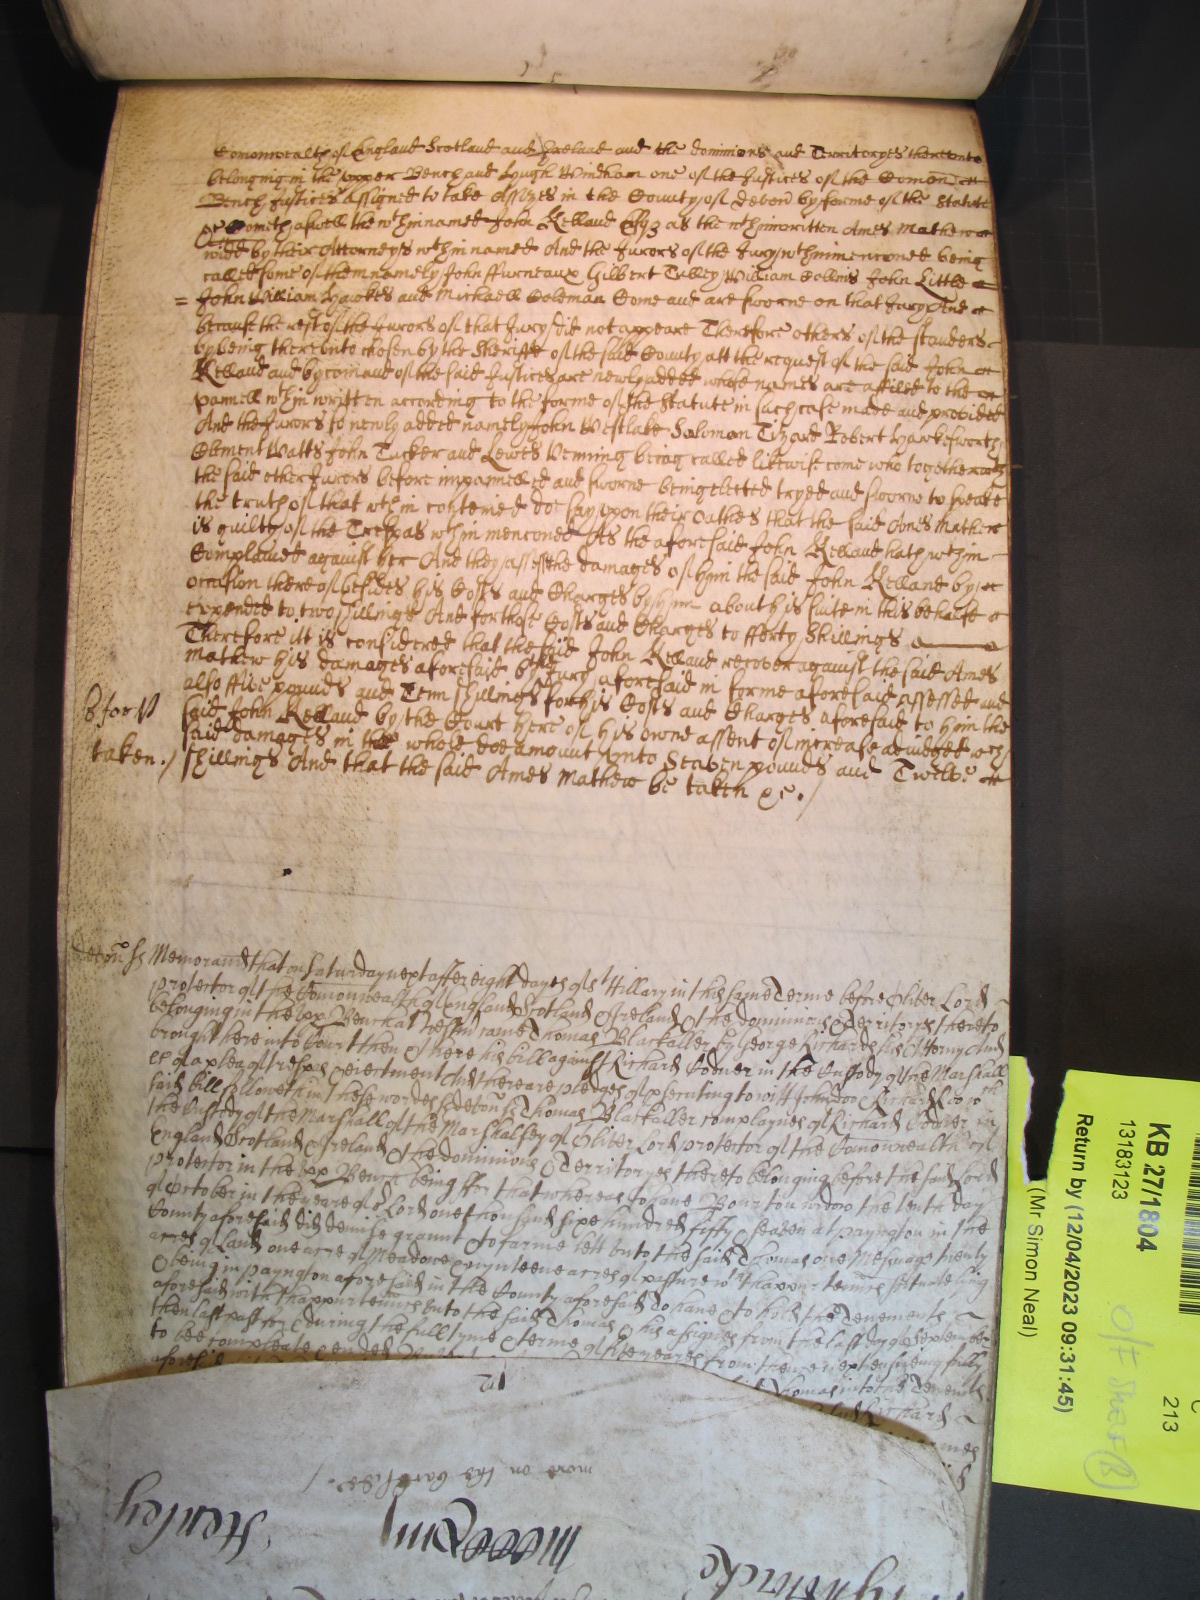 Comonwealth of England Scotland and Ireland and the dominions and Territoryes thereunto
belonging in the upper Bench and Hugh Windham one of the Justices of the Comon
Bench Justices assigned to take Assizes in the County of devon by forme of the Statute
&c Cometh aswell the wthin named John Kelland Esqz as the wthinwritten Ames Mathew
widd by their Attorneys wthin named And the Jurors of the Jury wthinmenconed being
called some of them namely John ffurneaux Gilbert Tulley William Collins John Little
= John William Hawkes and Michaell Coleman Come and are sworne on that Jury And
because the rest of the Jurors of that Jury did not appeare Therefore others of the standers
by being thereunto chosen by the Sheriffe of the said County att the request of the said John
Kelland and by comand of the said Justices are newly added whose names are affiled to the
pannell wthin written according to the forme of the Statute in such case made and provided
And the Jurors so newly added namely John Westlake Saloman Tizard Robert Hawkesworth
Clement Watts John Tucker and Lewes Venning being called likewise come who together wth
the said other Jurors before impannelled and sworne being elected tryed and sworne to speake
the truth of that wthin conteined doe say upon their oathes that the said Ames Mathew
is guilty of the Trespas wthin menconed As the aforesaid John Kelland hath wthin
Complained against her And they assesse the damages of him the said John Kelland by
occasion thereof besides his Costs and Charges by him about his suite in this behalfe
expended to two shillings And for those Costs and Charges to fforty Shillings
Therefore it is considered that the said John Kelland recover against the said Ames
Mathew his damages aforesaid by the Jury aforesaid in forme aforesaid assessed and
also ffive pounds and Tenn shillings for his Costs and Charges aforesaid to him the
said John Kelland by the Court here of his owne assent of increase adiudged wch
said damages in the whole doe amount unto Seaven pounds and Twelve
shillings And that the said Ames Mathew be taken &c./
taken./
devon ss Memorand that on Saturday next after eight dayes of St Hillary in this same Terme before Oliver Lord
protector of the Comonwealth of England Scotland & Ireland & the dominions & Territoryes thereto
belonging in the upp Bench att Westm came Thomas Blackaller by George Richards his Attorny And
brought here into Court then & there his bill against Richard Codner in the Custody of the Marshall
&c of a plea of trespas & eiectment And there are pledges of psecuting to witt John doo & Richard Roo wch
said bill followeth in these wordes ss devon ss Thomas Blackaller complaynes of Richard Codner in
the Custody of the Marshall of the Marshalsey of Oliver Lord protector of the Comonwealth of
England Scotland & Ireland & the dominions & Territoryes thereto belonging before the said Lord
protector in the upp Bench being ffor that whereas Johane Bourton widow the tenth day
of october in the yeare of or Lord one thousand sixe hundred fifty & seaven at payngton in the
County aforesaid did demise graunt & to farme lett unto the said Thomas one Mesuage twenty
acres of land one acre of Meadowe & nynteene acres of pasture wth thappurtennces scituate lying
& being in payngton aforesaid in the County aforesaid To have & to hold the Tenements
aforesaid with thappurtennces unto the said Thomas & his assignes from the last day of September
then last past for & during the full tyme & terme of five yeares from thence next ensueing fully
to bee compleate & ended
Thomas into the Tenemts
said Richard
12
more on the backside./
Henley
KB 27/1804
13183123
Return by (12/04/2023 09:31:45)
(Mr Simon Neal)
213